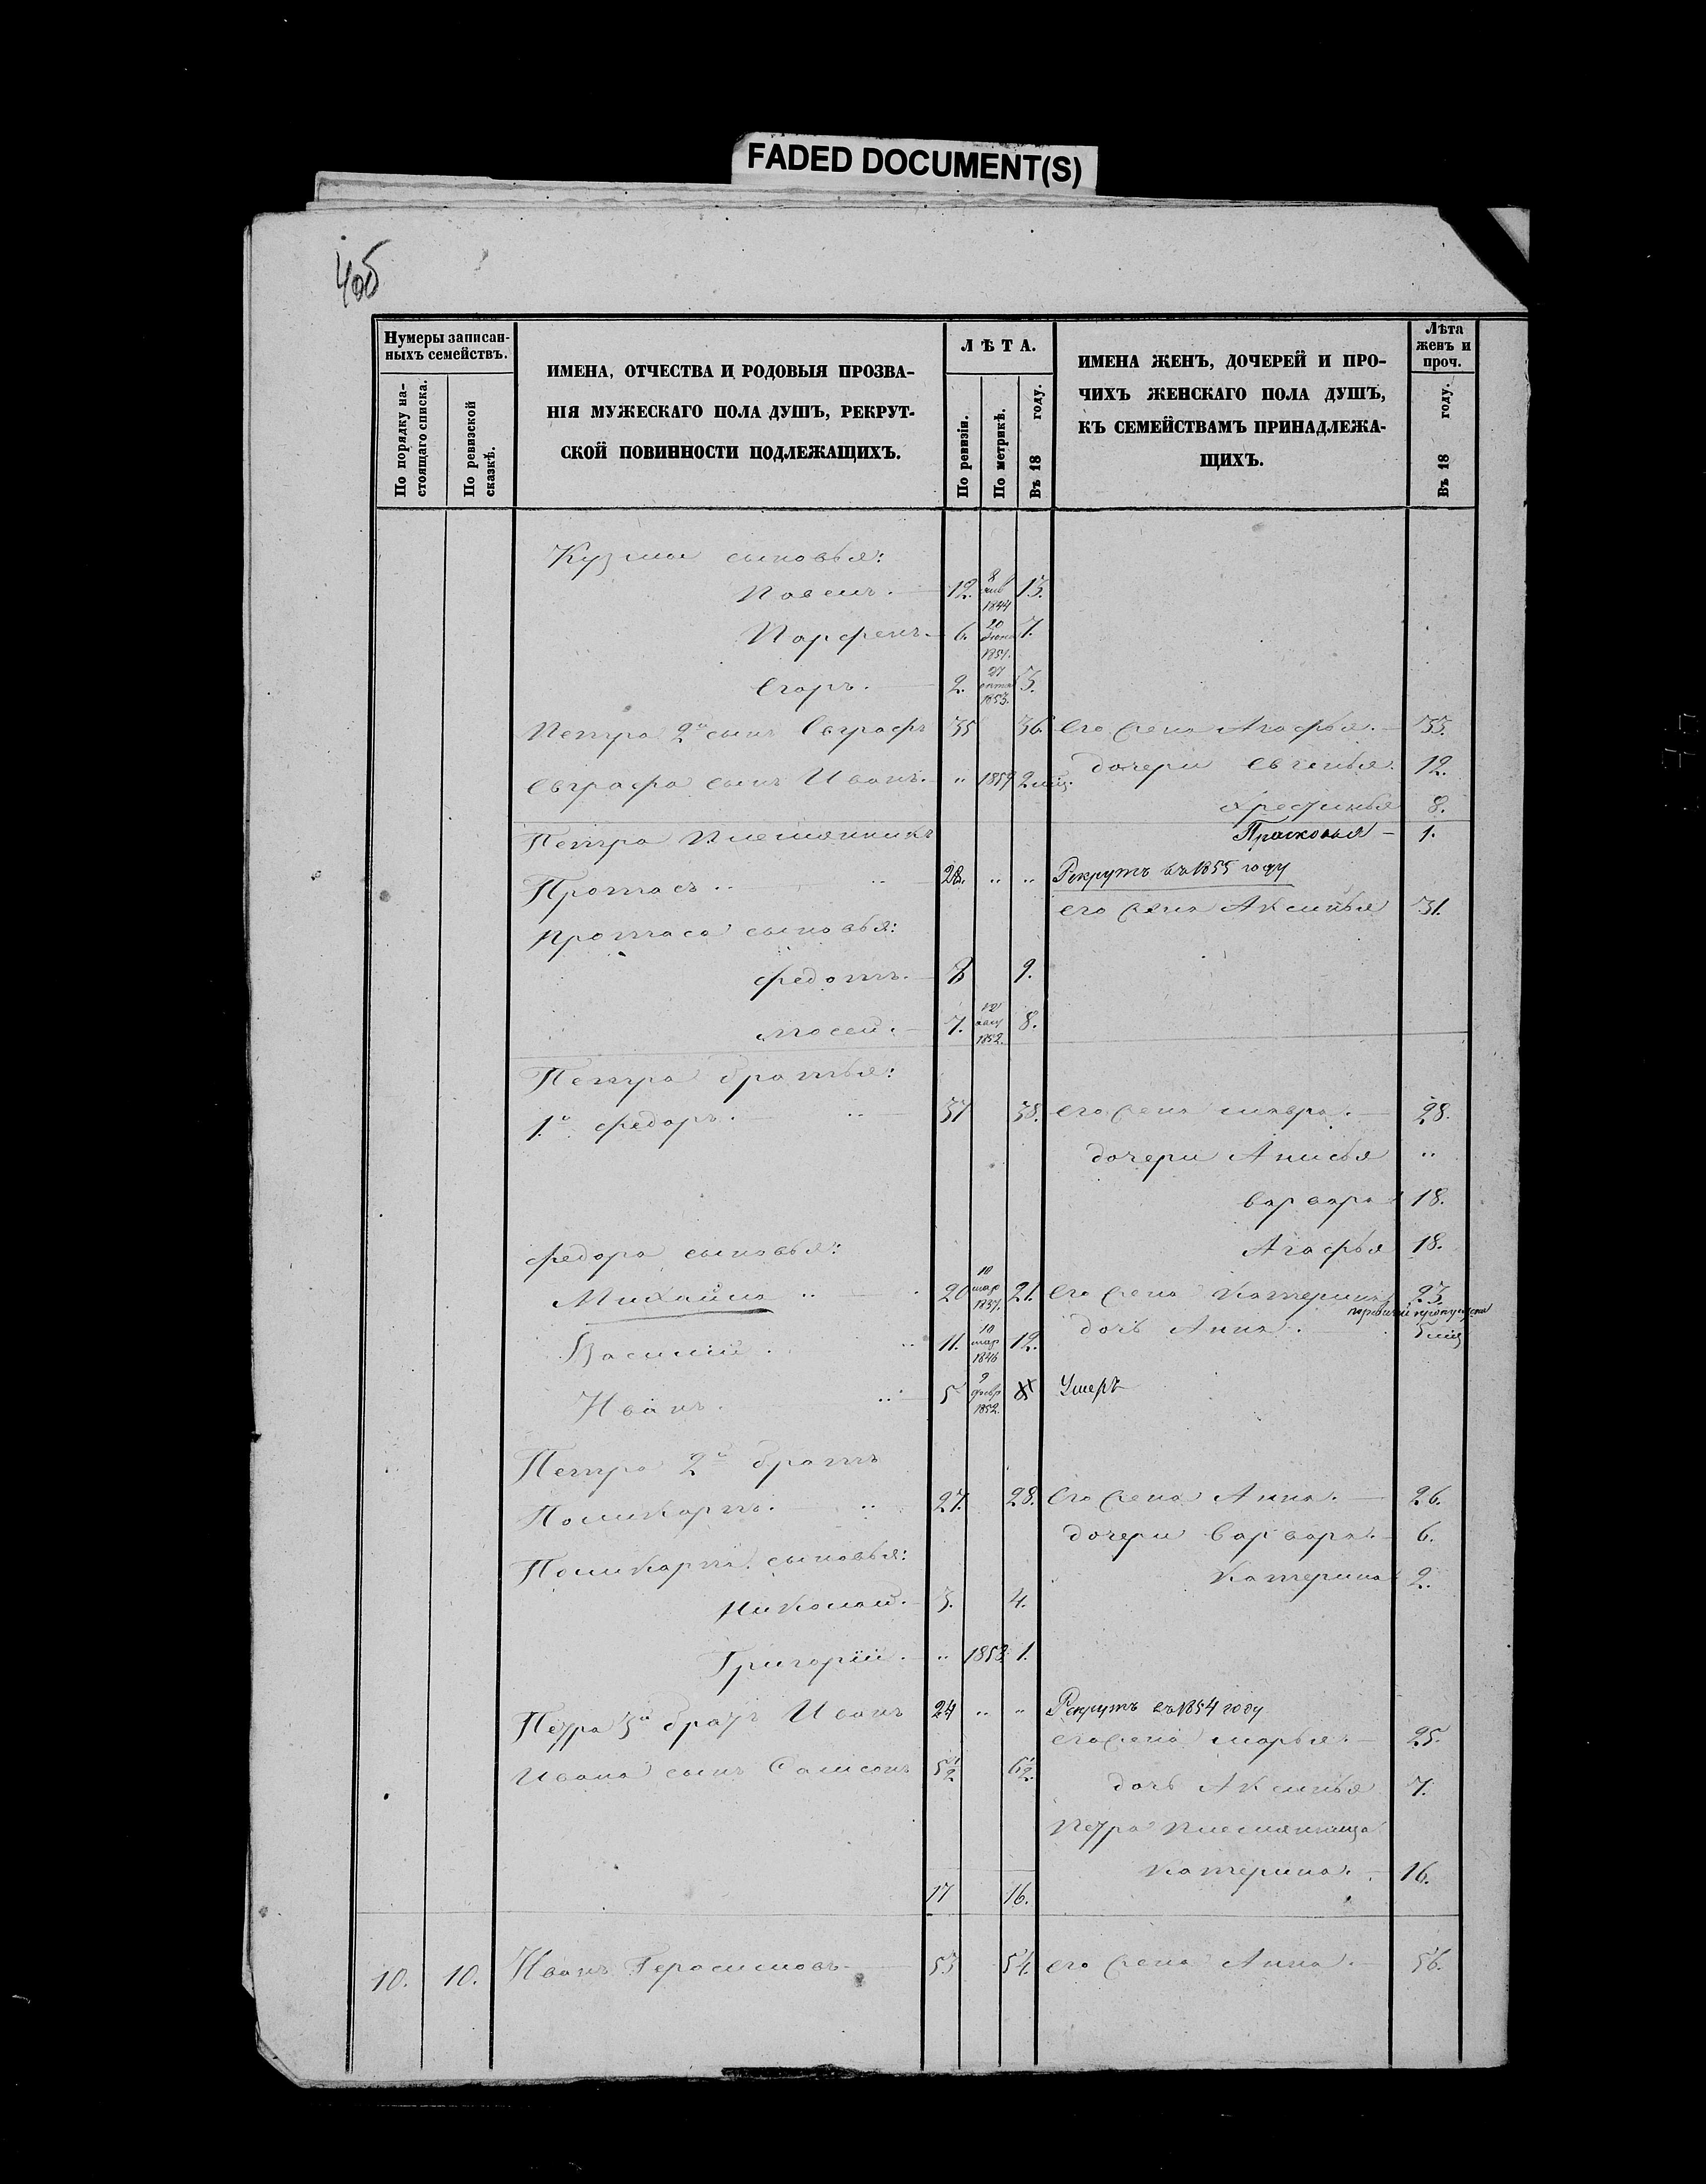 FADED DOCUMENT(S)
40б
Нумеры записан-
ныхъ семействъ.
По порядку на-
стоящаго списка.
По ревизской
сказкѣ.
ИМЕНА, ОТЧЕСТВА И РОДОВЫЯ ПРОЗВА-
НІЯ МУЖЕСКАГО ПОЛА ДУШЪ, РЕКРУТ-
СКОЙ ПОВИННОСТИ ПОДЛЕЖАЩИХЪ.
ЛѢТА.
По ревизіи.
По метрикѣ.
Въ 18 году.
ИМЕНА ЖЕНЪ, ДОЧЕРЕЙ И ПРО-
ЧИХЪ ЖЕНСКАГО ПОЛА ДУШЪ,
КЪ СЕМЕЙСТВАМЪ ПРИНАДЛЕЖА-
ЩИХЪ.
Лѣта
женъ и
проч.
Въ 18 году.
Кузмы сыновья:
Павелъ. 12. 8 янв 1844 13.
Парфенъ. 6. 20 1851. 7.
Егоръ. 2. 27 октя 1853. 3.
Петра 2й сынъ Евграфъ 35 36. его жена Агафья. 33.
Евграфа сынъ Иванъ. " 1857 2 мѣс. дочери Евгенья. 12.
Хрестинья 8.
Петра племянникъ Прасковья 1.
Протасъ 28. " " Рекрутъ въ 1855 году
его жена Аксинья 31.
Протаса сыновья:
Федотъ. 8 9.
Мосей. 7. 12 1852. 8.
Петра братья:
1й Федоръ. 37 38. его жена Мавра. 28.
дочери Анисья "
Варвара 18.
Федора сыновья: Агафья 18.
Михайла " 20 10 мар 1837. 21. его жена Катерина 23.
Василий. 11. 10 мар 1846 12. дочь Анна. 5 мѣс
Иванъ. 5 9 февр 1852. Умеръ
Петра 2й братъ
Поликарпъ. 27. 28. его жена Анна. 26.
дочери Варвара. 6.
Поликарпа сыновья: Катерина 2.
Николай. 3. 4.
Григорій. " 1858 1.
Петра 3й братъ Иванъ 24 " " Рекрутъ въ 1854 году
его жена Марья. 25.
Ивана сынъ Самсонъ 5½ 6½ дочь Аксинья 7.
Петра племянница
Катерина. 16.
17 16.
10. 10. Иванъ Герасимовъ 53 54. его жена Анна. 56.